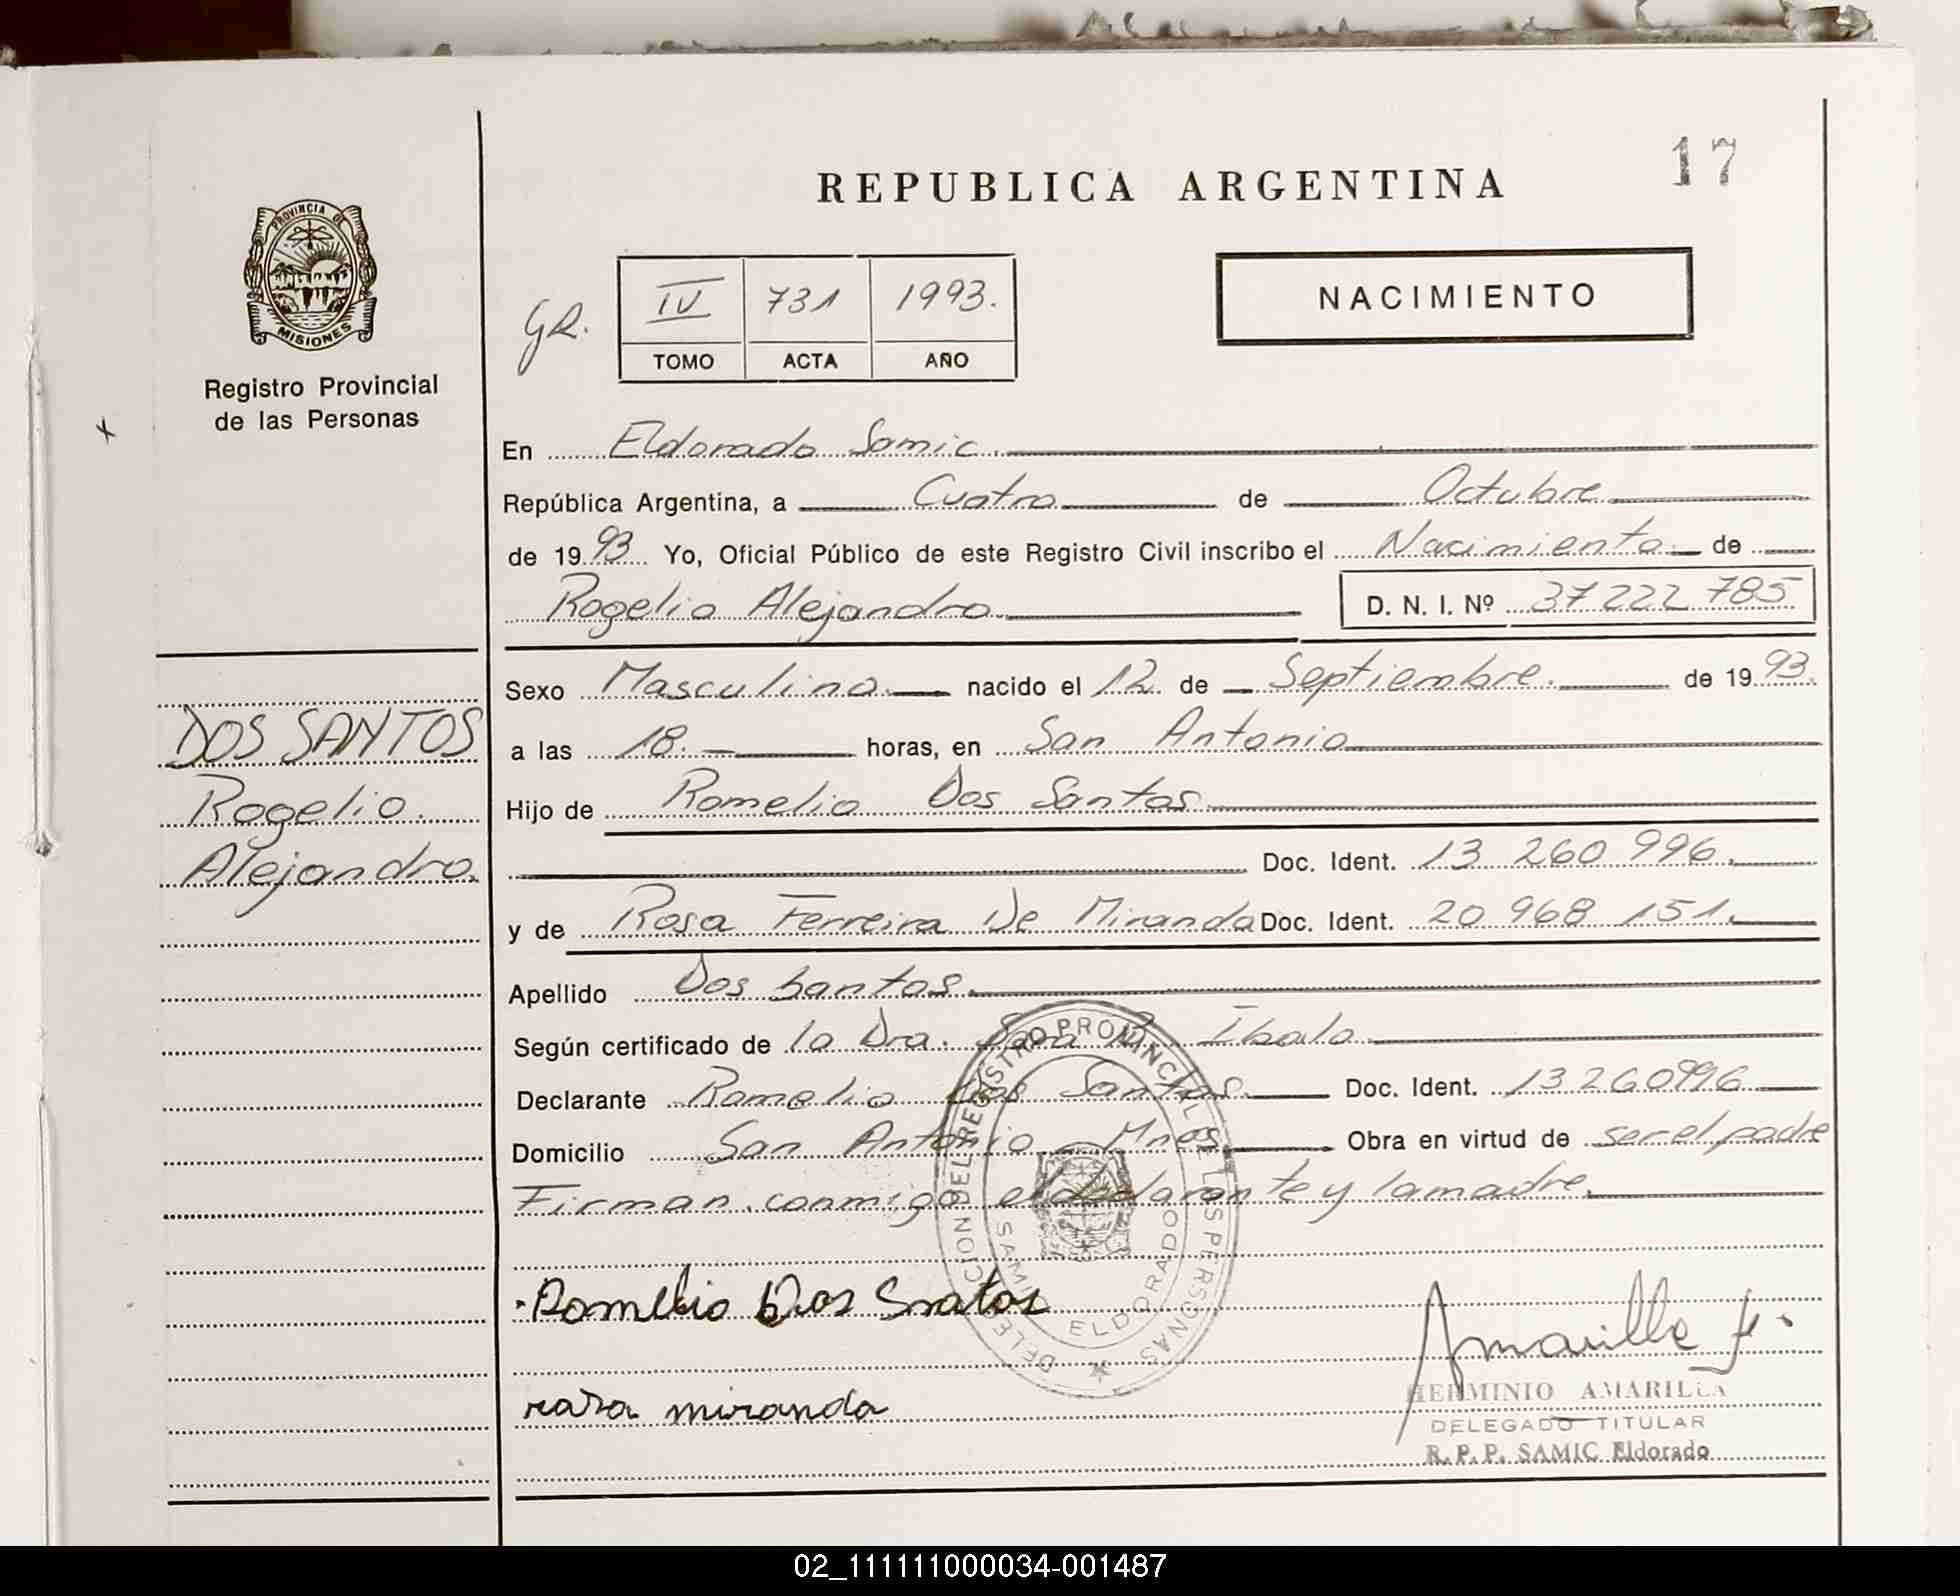 17
REPUBLICA ARGENTINA
PROVINCIA DE
MISIONES
Registro Provincial
de las Personas
GR.
IV 731 1993.
TOMO ACTA AÑO
NACIMIENTO
En Eldorado Samic.
República Argentina, a Cuatro de Octubre
de 1993 Yo, Oficial Público de este Registro Civil inscribo el Nacimiento de
Rogelio Alejandro D. N. I. Nº 37 222 785
Sexo Masculino. nacido el 12 de Septiembre. de 1993.
DOS SANTOS
Rogelio.
Alejandro.
a las 18. horas, en San Antonio
Hijo de Romelio Dos Santos
Doc. Ident. 13 260 996.
y de Rosa Ferreira De Miranda Doc. Ident. 20 968 151.
Apellido Dos Santos.
Según certificado de la Dra. Sara Ibalo.
Declarante Romelio Dos Santos. Doc. Ident. 13260996
Domicilio San Antonio Mnes. Obra en virtud de ser el padre
Firman conmigo el declarante y la madre.
DELEGACION DEL REGISTRO PROVINCIAL DE LAS PERSONAS
SAMIC ELDORADO
Romelio Dos Santos
rosa miranda
Amarilla H.
HERMINIO AMARILLA
DELEGADO TITULAR
R. P. P. SAMIC Eldorado
02_111111000034-001487